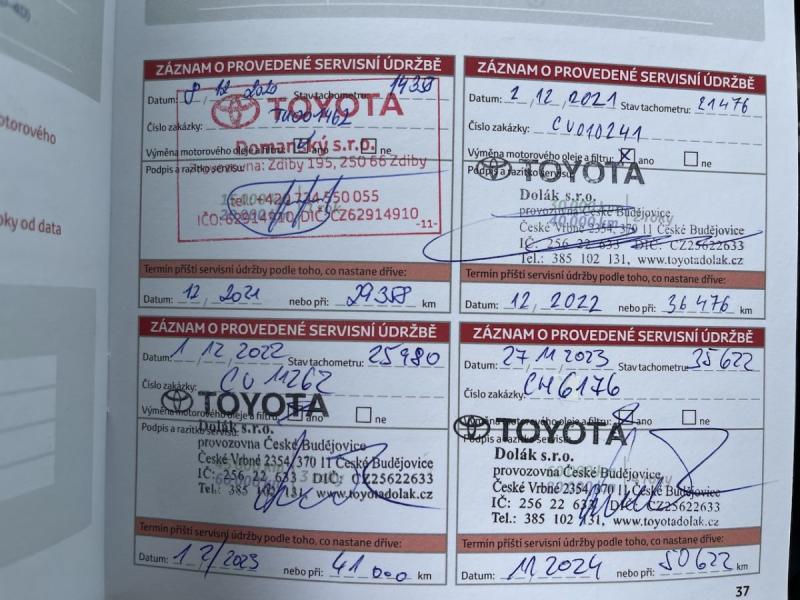 otorového
oky od data
ZÁZNAM O PROVEDENÉ SERVISNÍ ÚDRŽBĚ
Datum: 8 12 2020 Stav tachometru: 14358
TOYOTA
Číslo zakázky: TU001462
Domanský s.r.o.
Výměna motorového oleje a filtru: ano ne
Podpis a razítko servisu:
provozovna: Zdiby 195, 250 66 Zdiby
tel.: +420 724 550 055
IČO: 62914910, DIČ: CZ62914910
-11-
Termín příští servisní údržby podle toho, co nastane dříve:
Datum: 12. 2021 nebo při: 29358 km
ZÁZNAM O PROVEDENÉ SERVISNÍ ÚDRŽBĚ
Datum: 2 12 2021 Stav tachometru: 21476
Číslo zakázky: CU010241
Výměna motorového oleje a filtru: ano ne
Podpis a razítko servisu:
TOYOTA
Dolák s.r.o.
provozovna České Budějovice
České Vrbné 2354, 370 11 České Budějovice
IČ: 256 22 633 DIČ: CZ25622633
Tel.: 385 102 131, www.toyotadolak.cz
Termín příští servisní údržby podle toho, co nastane dříve:
Datum: 12. 2022 nebo při: 36476 km
ZÁZNAM O PROVEDENÉ SERVISNÍ ÚDRŽBĚ
Datum: 1 12 2022 Stav tachometru: 25980
Číslo zakázky: CU 11262
Výměna motorového oleje a filtru: ano ne
TOYOTA
Podpis a razítko servisu:
Dolák s.r.o.
provozovna České Budějovice
České Vrbné 2354, 370 11 České Budějovice
IČ: 256 22 633 DIČ: CZ25622633
Tel.: 385 102 131, www.toyotadolak.cz
Termín příští servisní údržby podle toho, co nastane dříve:
Datum: 12/2023 nebo při: 41 000 km
ZÁZNAM O PROVEDENÉ SERVISNÍ ÚDRŽBĚ
Datum: 27 11 2023 Stav tachometru: 35622
Číslo zakázky: CH6176
ano ne
TOYOTA
Podpis a razítko servisu:
Dolák s.r.o.
provozovna České Budějovice
České Vrbné 2354, 370 11 České Budějovice
IČ: 256 22 633 DIČ: CZ25622633
Tel.: 385 102 131, www.toyotadolak.cz
Termín příští servisní údržby podle toho, co nastane dříve:
Datum: 11 2024 nebo při: 50622 km
37